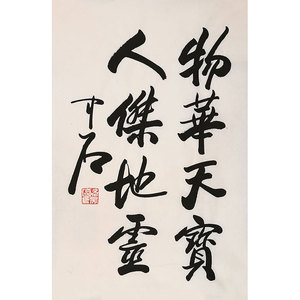 物華天寶
人傑地靈
中石